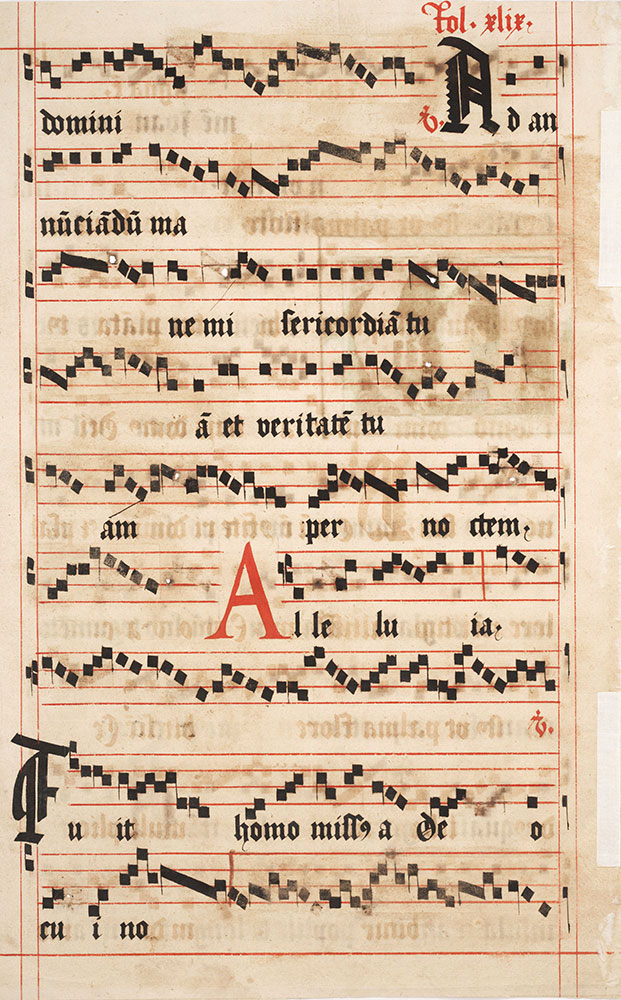 Fol. xlix.
domini ℣. Ad an
nūciādū ma
ne mi sericordiā tu
ā et veritatē tu
am per no ctem.
Al le lu ia.
℣.
Fu it homo missꝰ a Deo
cu i no